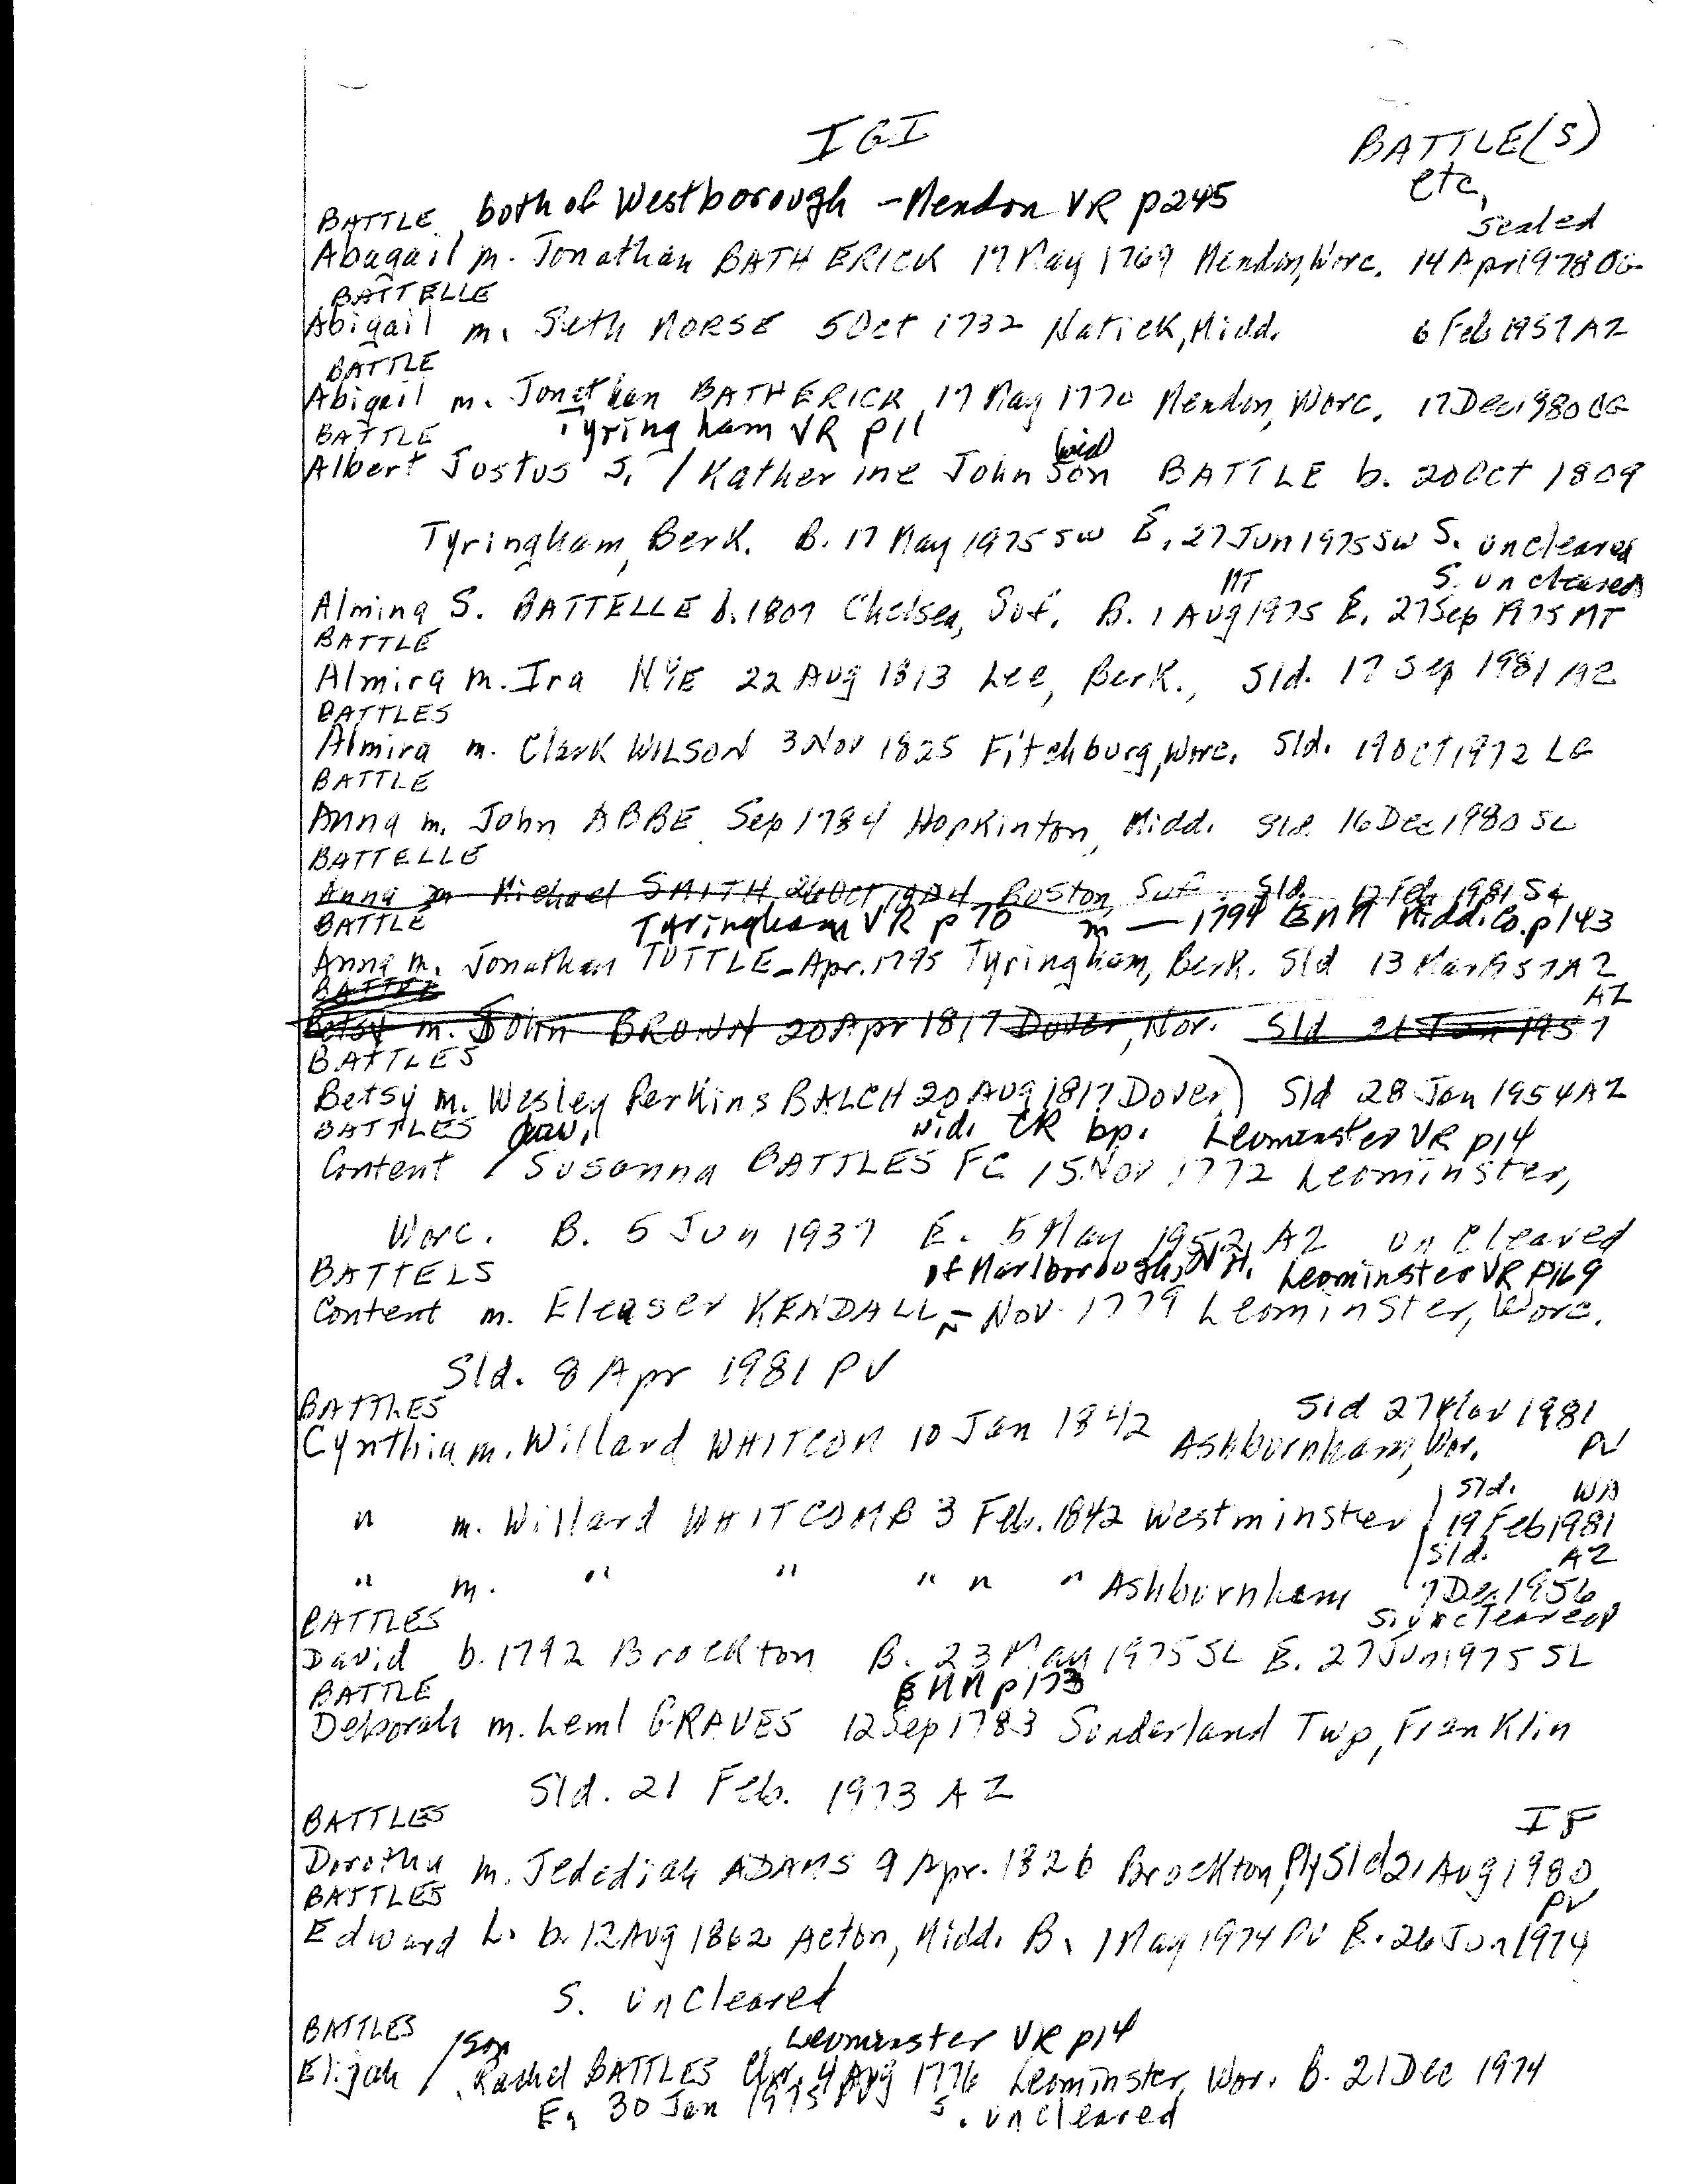 IGI
BATTLE(S)
etc.
BATTLE both of Westborough - Mendon VR p245
sealed
Abagail m. Jonathan BATHERICK 17 May 1769 Mendon, Worc. 14 Apr 1978 OG
BATTELLE
Abigail m. Seth MORSE 5 Oct 1732 Natick, Midd. 6 Feb 1957 AZ
BATTLE
Abigail m. Jonathan BATHERICK, 17 May 1770 Mendon, Worc. 17 Dec 1980 OG
BATTLE Tyringham VR p11
wid
Albert Justus J. / Katherine Johnson BATTLE b. 20 Oct 1809
Tyringham, Berk. B. 17 May 1975 SW E. 27 Jun 1975 SW S. uncleared
MT S. uncleared
Almina S. BATTELLE b. 1807 Chelsea, Suf. B. 1 Aug 1975 E. 27 Sep 1975 MT
BATTLE
Almira m. Ira NYE 22 Aug 1813 Lee, Berk., Sld. 17 Sep 1981 AZ
BATTLES
Almira m. Clark WILSON 3 Nov 1825 Fitchburg, Worc. Sld. 19 Oct 1972 LG
BATTLE
Anna m. John ABBE Sep 1784 Hopkinton, Midd. Sld 16 Dec 1980 SL
BATTELLE
Anna m Michael SMITH 26 Oct Boston, Suf. Sld. 12 Feb 1981
BATTLE Tyringham VR p 70 m — 1794 Midd. Co. p143
Anna m. Jonathan TUTTLE - Apr. 1795 Tyringham, Berk. Sld 13 Mar 1957 AZ
BATTLE
AZ
Betsy m. John BROWN 20 Apr 1817 Dover, Nor. Sld 21 Jan 1957
BATTLES
Betsy m. Wesley Perkins BALCH 20 Aug 1817 Dover) Sld 28 Jan 1954 AZ
BATTLES wid. CR bp. Leominster VR p14
Content / Susanna BATTLES FC 15 Nov 1772 Leominster,
Worc. B. 5 Jun 1937 E. 5 May 1952 AZ uncleared
BATTELS of Marlborough, N.H. Leominster VR p169
Content m. Eleaser KENDALL - Nov. 1779 Leominster, Worc.
Sld. 8 Apr 1981 PV
BATTLES Sld 27 Mar 1981
Cynthia m. Willard WHITCOM 10 Jan 1842 Ashburnham, Wor. PV
Sld. WA
" m. Willard WHITCOMB 3 Feb. 1842 Westminster 19 Feb 1981
Sld. AZ
" m. " " " " " Ashburnham 7 Dec 1956
BATTLES S. uncleared
David b. 1792 Brockton B. 23 May 1975 SL E. 27 Jun 1975 SL
BATTLE p173
Deborah m. Leml GRAVES 12 Sep 1783 Sunderland Twp, Franklin
Sld. 21 Feb. 1973 AZ
BATTLES IF
Dorothy m. Jedediah ADAMS 9 Apr. 1826 Brockton, Ply Sld 21 Aug 1980
BATTLES PV
Edward L. b. 12 Aug 1862 Acton, Midd. B. 1 May 1974 PV E. 26 Jun 1974
S. uncleared
BATTLES / Son Leominster VR p14
Elijah / Rachel BATTLES Chr. 4 Aug 1776 Leominster, Wor. B. 21 Dec 1974
E. 30 Jan 1975 S. uncleared